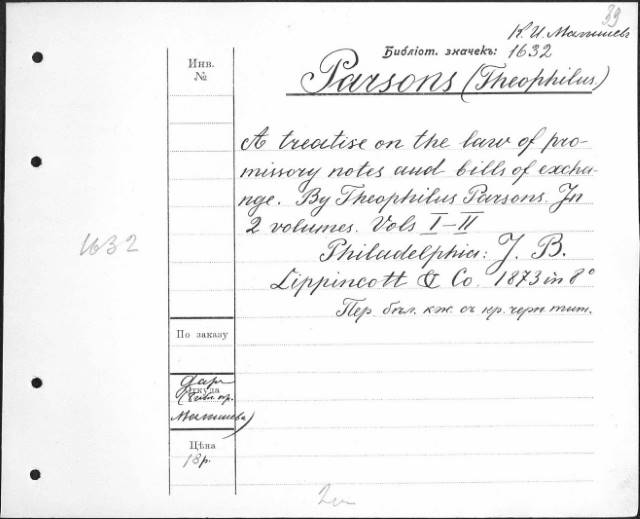 39
К. И. Малышев
Библіот. значекъ: 1632
Инв.
№
Parsons (Theophilus)
A treatise on the law of pro-
missory notes and bills of excha-
nge. By Theophilus Parsons. In
2 volumes. Vols I–II
1632
Philadelphia: J. B.
Lippincott & Co. 1873 in 8°
Пер. бѣл. кж. съ кр. черн тит.
По заказу
Дар
Откуда
Малышева)
Цѣна
18 р.